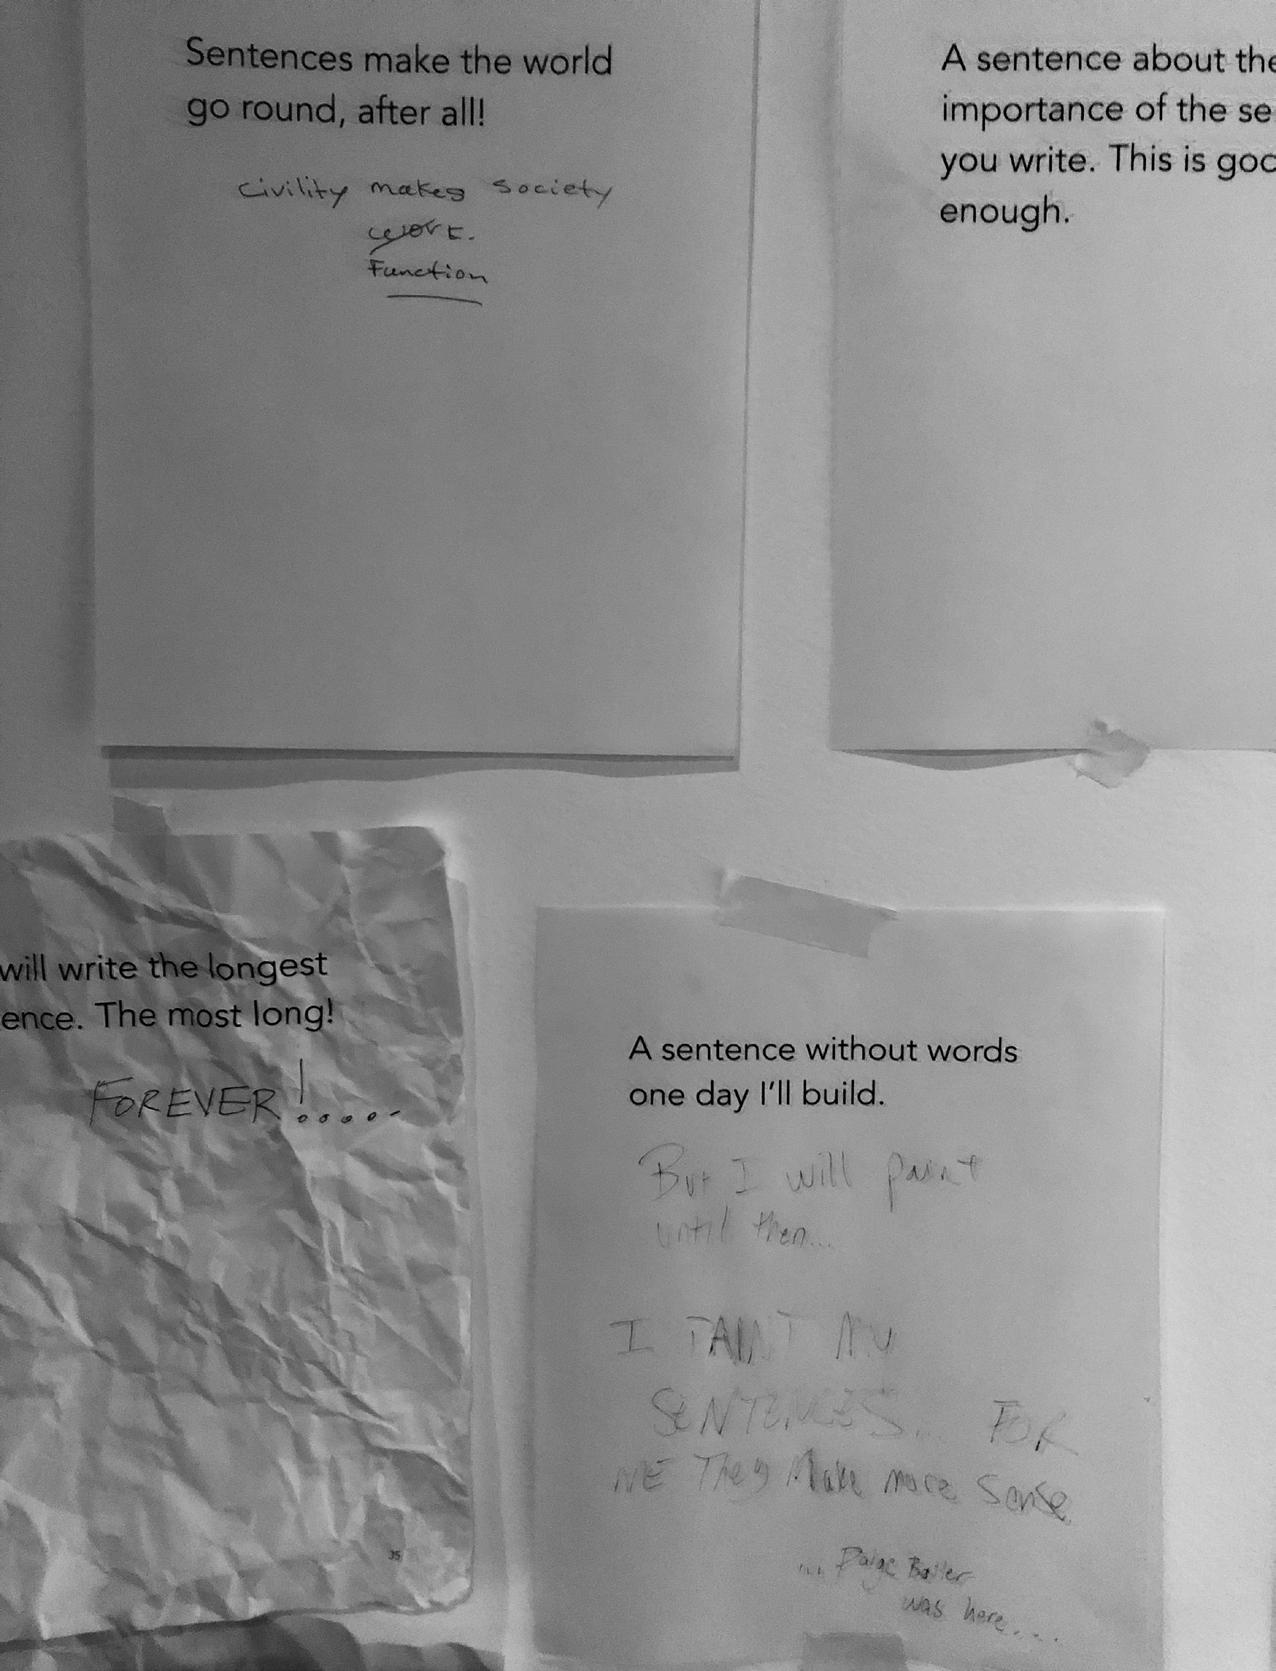 Sentences make the world
go round, after all!
Civility makes society
work.
Function
A sentence about the
importance of the se
you write. This is goo
enough.
will write the longest
ence. The most long!
FOREVER!.....
35
A sentence without words
one day I'll build.
But I will paint
until then...
I PAINT MY
SENTENCES... FOR
ME They Make more Sense
... Paige
was here....